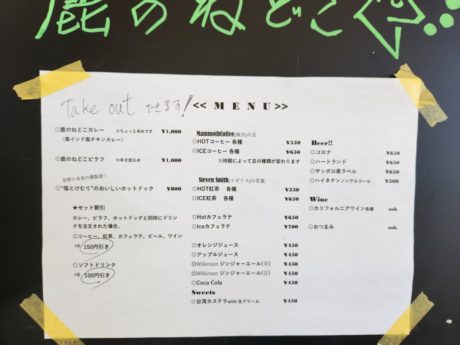 鹿のねどこ
Take out できます! << MENU >>
◎鹿のねどこカレー ※ちょっと辛めです ¥1,000
(南インド風チキンカレー)
◎鹿のねどこピラフ ¥1,000
◎"塩とけむり"のおいしいホットドック ¥800
★セット割引
カレー、ピラフ、ホットドックと同時にドリン
クを注文された場合、
◎コーヒー、紅茶、カフェラテ、ビール、ワイン
⇒ 150円引き
◎ソフトドリンク
⇒ 100円引き
MammothCoffee
◎HOTコーヒー 各種 ¥550
◎ICEコーヒー 各種 ¥650
※時期によって豆の種類が変わります
Steven Smith(イギリス)の茶葉
◎HOT紅茶 各種 ¥550
◎ICE紅茶 各種 ¥650
◎Hotカフェラテ ¥650
◎Iceカフェラテ ¥700
◎オレンジジュース ¥450
◎アップルジュース ¥450
◎Wilkinson ジンジャーエール ¥450
◎Wilkinson ジンジャーエール ¥450
◎Coca Cola ¥450
Sweets
◎台湾カステラwith 生クリーム ¥450
Beer!!
◎コロナ ¥650
◎ハートランド ¥650
◎サッポロ黒ラベル ¥650
◎ハイネケン ¥500
Wine
◎カリフォルニアワイン各種 ask
◎おつまみ ask